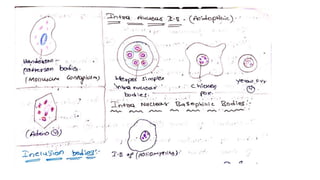 Intra Nucear I.B - (Acidophilic) -
Henderson -
patterson bodies.
(Molluscum Contagiosum)
Herpes Simplex
Intra nuclear
bodies.
Chicken
pox.
Yellow Fev
(Adeno
Intra Nuclear Basophilic Bodies:-
Inclusion bodies:-
I.B of